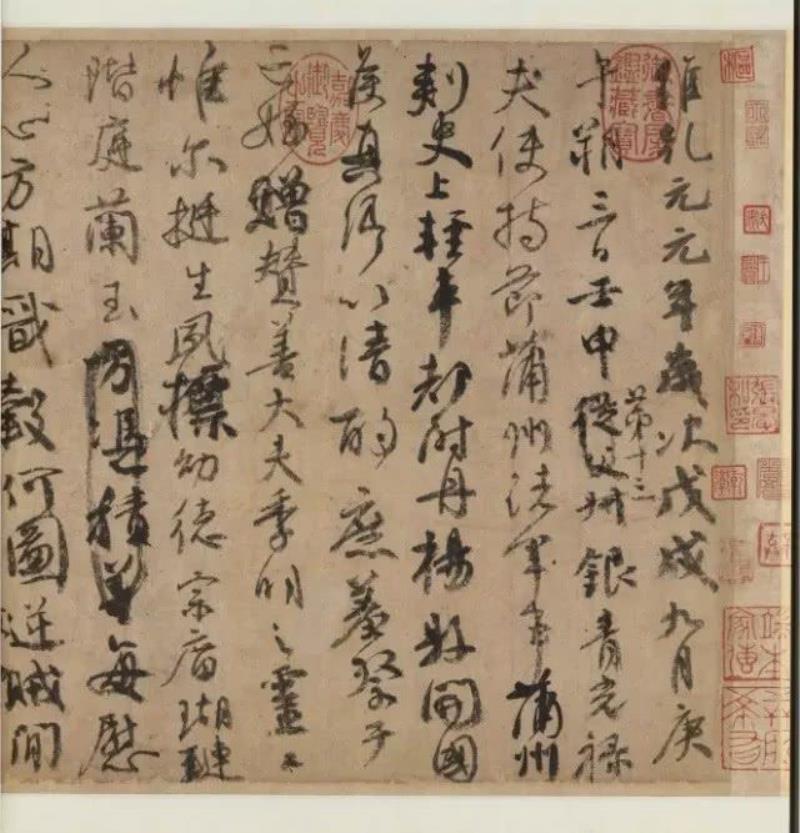 維乾元元年歲次戊戌九月庚
午朔三日壬申第十三從父叔銀青光祿
夫使持節蒲州諸軍事蒲州
刺史上輕車都尉丹楊縣開國
侯真卿以清酌庶羞祭于
亡姪贈贊善大夫季明之靈曰
惟爾挺生夙標幼德宗廟瑚璉
階庭蘭玉方憑積善每慰
人心方期戩穀何圖逆賊間
嘉慶御覽之寶